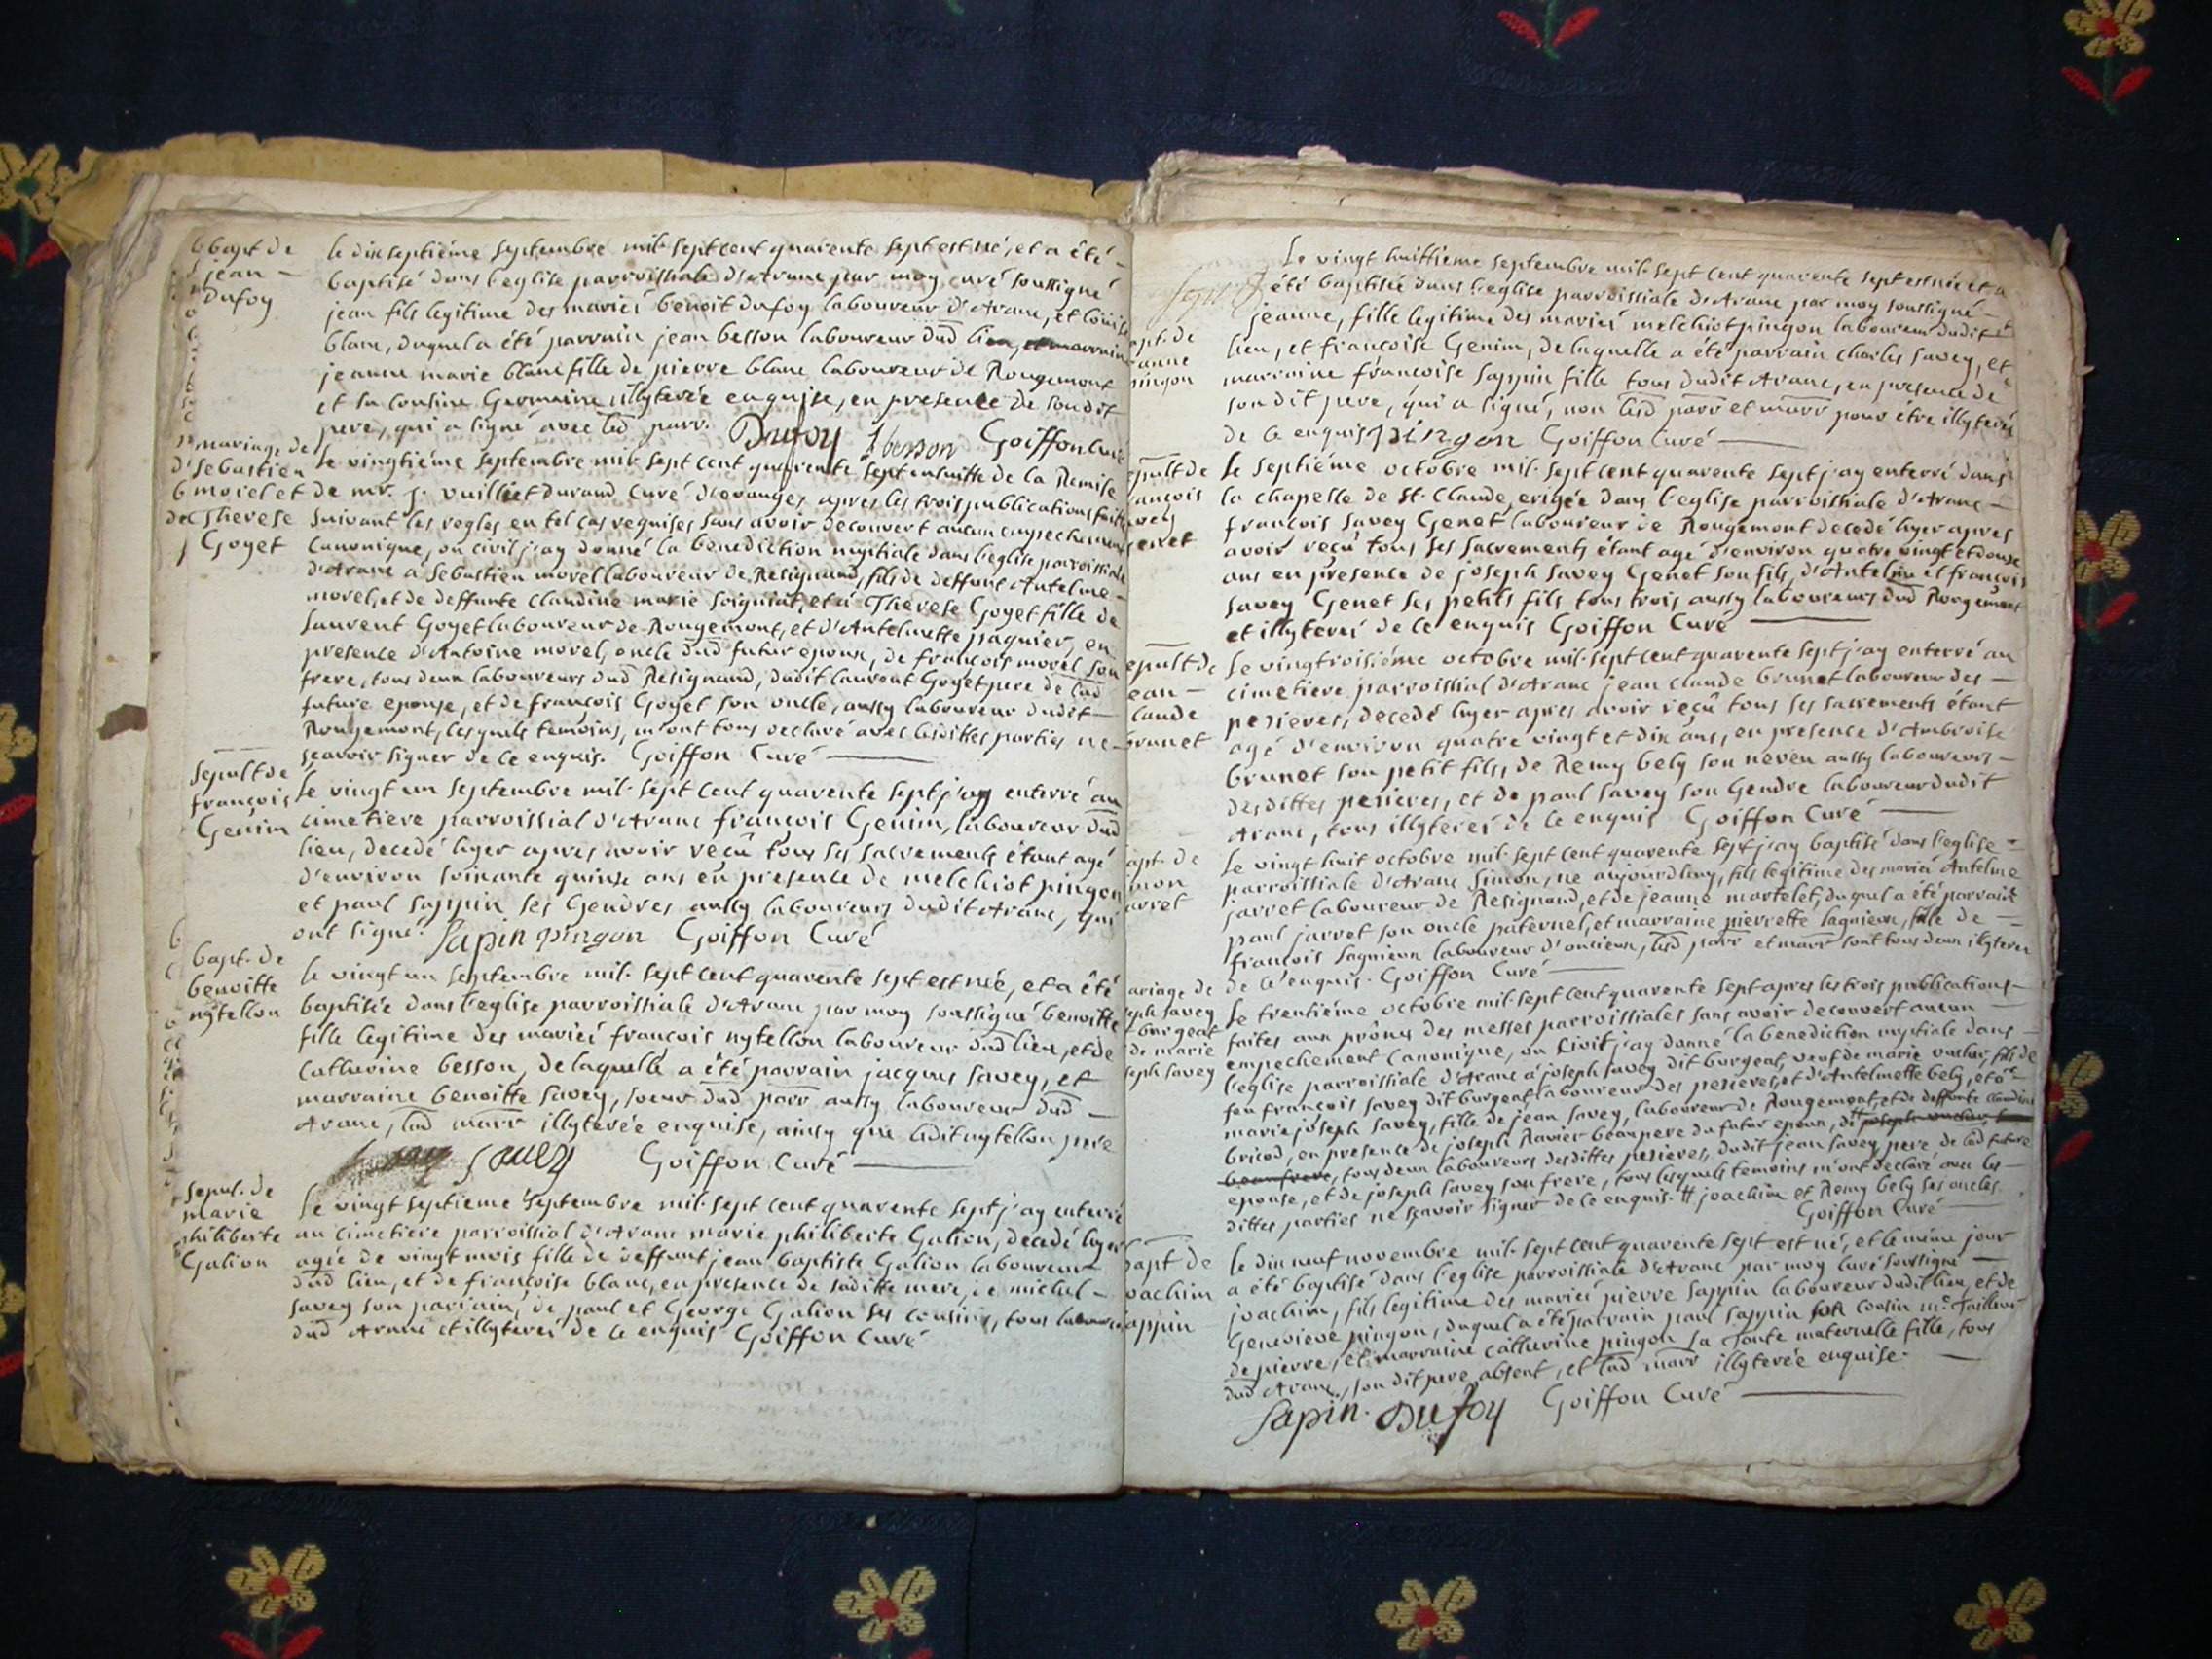 bapt de
jean
Dufoy
le dix septiéme septembre mil sept cent quarente sept est né, et a été
baptisé dans l'eglise parroissiale d'Aranc par moy curé soussigné
jean fils legitime des mariés benoit dufoy laboureur d'Aranc, et
blanc, duquel a été parrain jean besson laboureur dud lieu, et marraine
jeanne marie blanc fille de pierre blanc laboureur de Rougemont
et sa cousine Germaine illyterée enquise, en presence de son dit
pere, qui a signé avec led parr. Dufoy Jbesson Goiffon Curé
mariage de
Sebastien
morel et
de Therese
Goyet
le vingtiéme septembre mil sept cent quarente sept ensuitte de la Remise
de mr. j. vuilliet durand Curé d'evanges apres les trois publications faites
suivant les regles en tel cas requises sans avoir decouvert aucun empechement
canonique, ou civil j'ay donné la benediction nuptiale dans l'eglise parroissiale
d'Aranc a Sebastien morel laboureur de Resignand, fils de deffunt Antelme
morel, et de deffunte Claudine marie soigniat, et a Therese Goyet fille de
laurent Goyet laboureur de Rougemont, et d'Antelmette paquier, en
presence d'Antoine morel, oncle dud futur epoux, de françois morel son
frere, tous deux laboureurs dud Resignand, dudit laurent Goyet pere de lad
future epouse, et de françois Goyet son oncle, aussy laboureur dudit
Rougemont, lesquels temoins, m'ont tous declaré avec lesdittes parties ne
sçavoir signer de ce enquis. Goiffon Curé
sepult de
françois
Genim
le vingt un septembre mil sept cent quarente sept j'ay enterré au
cimetiere parroissial d'Aranc françois Genim, laboureur dud
lieu, decedé hyer apres avoir reçû tous ses sacrements étant agé
d'environ soixante quinze ans en presence de melchiot pingon
et paul sappin ses Gendres aussy laboureurs dudit Aranc, qui
ont signé. Sapin pingon Goiffon Curé
bapt. de
benoitte
nytellon
le vingt un septembre mil sept cent quarente sept est née, et a été
baptisée dans l'eglise parroissiale d'Aranc par moy soussigné benoitte
fille legitime des mariés françois nytellon laboureur dud lieu, et de
Catherine besson, de laquelle a été parrain jacques savey, et
marraine benoitte savey, soeur dud parr aussy laboureur dud
Aranc, lad marr illyterée enquise, ainsy que ledit nytellon pere
savey Goiffon Curé
sepul. de
marie
philiberte
Galion
le vingt septieme septembre mil sept cent quarente sept j'ay enterré
au cimetiere parroissial d'Aranc marie philiberte Galion, decedé hyer
agée de vingt mois fille de deffunt jean baptiste Galion laboureur
dud lieu, et de françoise blanc, en presence de saditte mere, de michel
savey son parrain, de paul et George Galion ses cousins, tous
dud Aranc et illyterés de ce enquis Goiffon Curé
le vingt huittieme septembre mil sept cent quarente sept est née et a
été baptisée dans l'eglise parroissiale d'Aranc par moy soussigné
jeanne, fille legitime des mariés melchiot pingon laboureur dudit
lieu, et françoise Genim, de laquelle a été parrain charles savey, et
marraine françoise sappin fille tous dudit Aranc, en presence de
son dit pere, qui a signé, non lesd parr et marr pour être illyterés
de ce enquis pingon Goiffon Curé
apt. de
anne
pingon
epult de
ançois
vey
genet
le septiéme octobre mil sept cent quarente sept j'ay enterré dans
la chapelle de st. Claude, erigée dans l'eglise parroissiale d'Aranc
françois savey Genet laboureur de Rougemont decedé hyer apres
avoir reçû tous ses sacrements étant agé d'environ quatre vingt et douze
ans en presence de joseph savey Genet son fils, d'Antelme et françois
savey Genet ses petits fils tous trois aussy laboureurs dud Rougemont
et illyterés de ce enquis Goiffon Curé
epult de
ean
laude
brunet
le vingtroisiéme octobre mil sept cent quarente sept j'ay enterré au
cimetiere parroissial d'Aranc jean claude brunet laboureur des
pezieres, decedé hyer apres avoir reçû tous ses sacrements étant
agé d'environ quatre vingt et dix ans, en presence d'Ambroise
brunet son petit fils, de Remy bely son neveu aussy laboureurs
desdittes pezieres, et de paul savey son Gendre laboureur dudit
Aranc, tous illyterés de ce enquis Goiffon Curé
apt. de
imon
arret
le vingt huit octobre mil sept cent quarente sept j'ay baptisé dans l'eglise
parroissiale d'Aranc Simon, né aujourdhuy, fils legitime des mariés Antelme
jarret laboureur de Resignand, et de jeanne martelet, duquel a été parrain
paul jarret son oncle paternel, et marraine pierrette sagnieux, fille de
françois sagnieux laboureur d'oncieux, lesd parr et marr sont tous deux illyterés
de ce enquis. Goiffon Curé
ariage de
seph savey
burgeat
de marie
seph savey
le trentiéme octobre mil sept cent quarente sept apres les trois publications
faites aux prônes des messes parroissiales sans avoir decouvert aucun
empechement Canonique, ou Civil j'ay donné la benediction nuptiale dans
l'eglise parroissiale d'Aranc a joseph savey dit burgeat, veuf de marie fils de
feu françois savey dit burgeat laboureur des pezieres, et d'Antelmette bely, et a
marie joseph savey, fille de jean savey, laboureur de Rougemont, et de deffunte claudine
bricod, en presence de joseph Ravier beau pere du futur epoux,
beau frere, tous deux laboureurs desdittes pezieres, dudit jean savey pere de lad future
epouse, et de joseph savey son frere, tous lesquels temoins m'ont declaré avec les
dittes parties ne sçavoir signer de ce enquis. # joachim et Remy bely ses oncles.
Goiffon Curé
bapt de
joachim
sappin
le dix neuf novembre mil sept cent quarente sept est né, et le même jour
a été baptisé dans l'eglise parroissiale d'Aranc par moy Curé soussigné
joachim, fils legitime des mariés pierre sappin laboureur dudit lieu, et de
Genevieve pingon, duquel a été parrain paul sappin son cousin
de pierre, et marraine catherine pingon sa Tante maternelle fille, tous
dud Aranc, son dit pere absent, et lad marr illyterée enquise.
Sapin. Dufoy Goiffon Curé